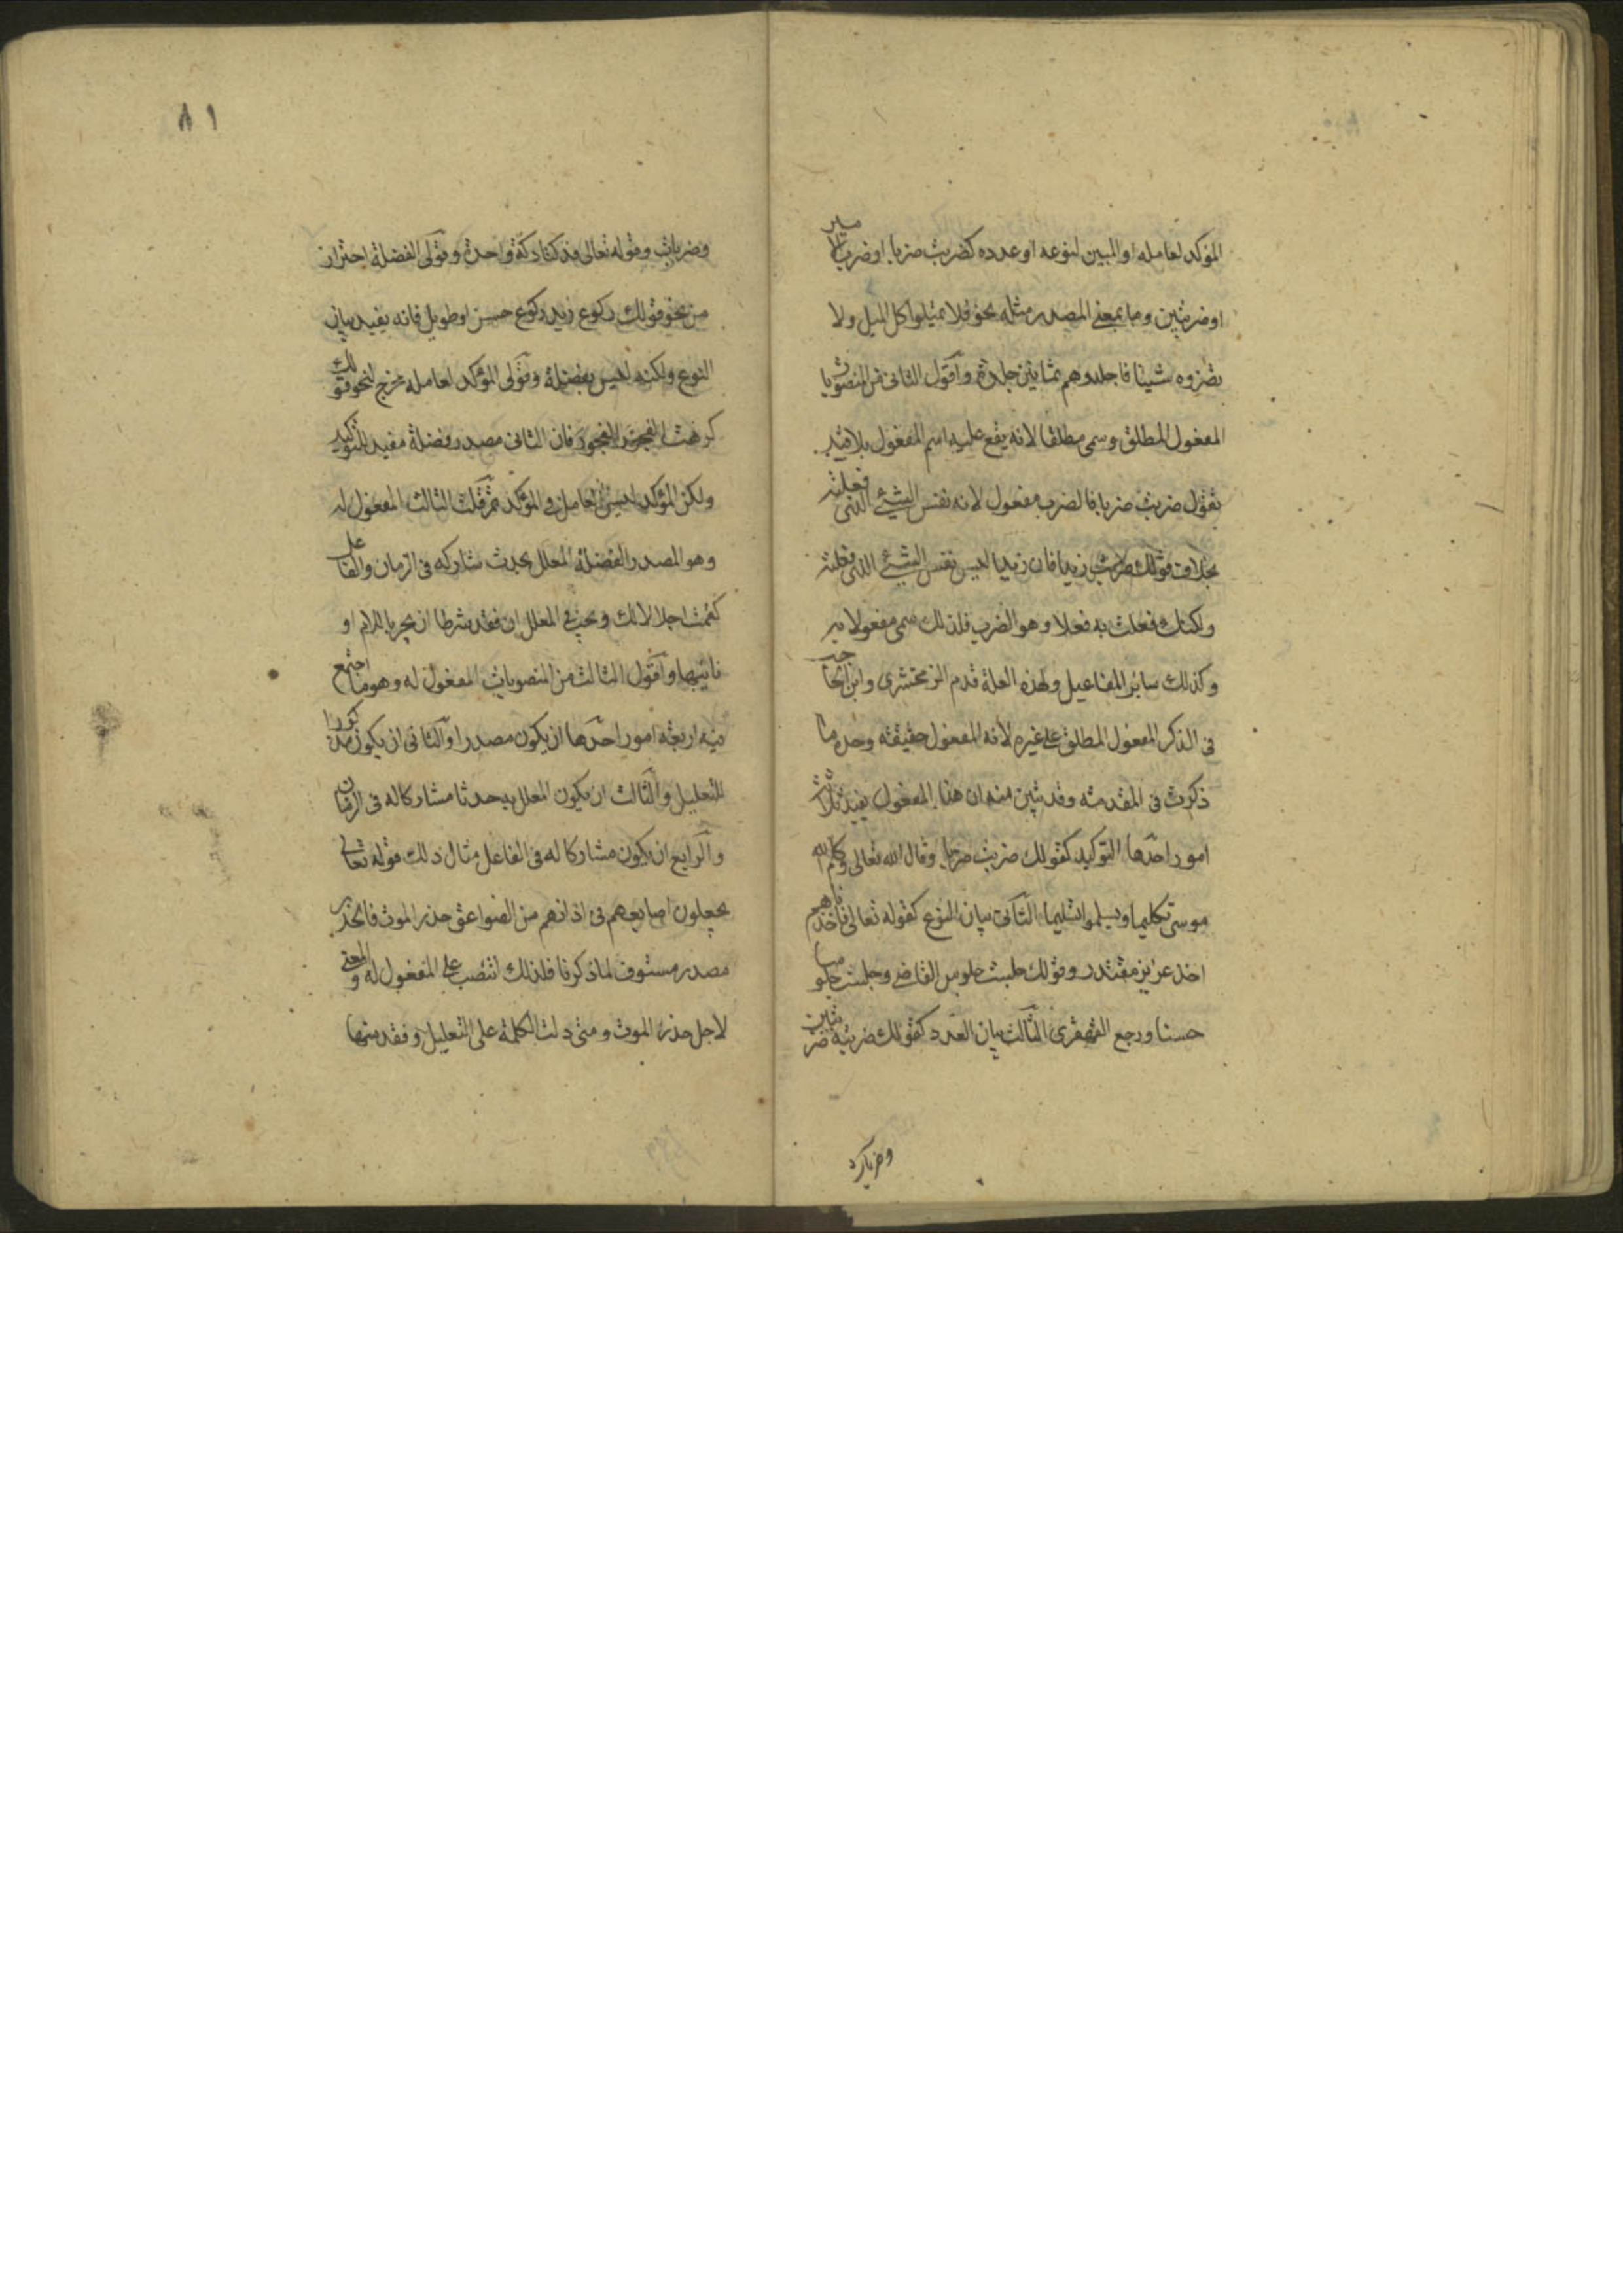 المؤكد لعامله او المبين لنوعه او عدده كضربت ضربا او ضرب الامير
او ضربتين وما بمعنى المصدر مثله نحو فلا تميلوا كل الميل ولا
تضروه شيئا فاجلدوهم ثمانين جلدة واقول الثانى من المنصوبا
المفعول المطلق وسمى مطلقا لانه يقع عليه اسم المفعول بلا قيد
تقول ضربت ضربا فالضرب مفعول لانه نفس الشيئ الذى فعلته
بخلاف قولك ضربت زيدا فان زيدا ليس نفس الشيئ الذى فعلته
ولكنك فعلت به فعلا وهو الضرب فلذلك سمى مفعولا به
وكذلك سائر المفاعيل ولهذه العلة قدم الزمخشرى وابن الحاجب
فى الذكر المفعول المطلق على غيره لانه المفعول حقيقته وحده ما
ذكرت فى المقدمته وقد تبين منه ان هذا المفعول يفيد ثلاث
امور احدها التوكيد كقولك ضربت ضربا وقال الله تعالى وكلم الله
موسى تكليما ويسلموا تسليما الثانى بيان النوع كقوله تعالى فاخذناهم
اخذ عزيز مقتدر وقولك جلست جلوس القاضى وجلست جلوسا
حسنا ورجع القهقرى الثالث بيان العدد كقولك ضربته ضربتين
٨١
وضربات وقوله تعالى فدكتا دكة واحدة وقولى الفضلة احتراز
من نحو قولك ركوع زيد ركوع حسن او طويل فانه يفيد بيان
النوع ولكنه ليس بفضلة وقولى المؤكد لعامله مخرج لنحو قولك
كرهت الفجور الفجور فان الثانى مصدر فضلة مفيد للتوكيد
ولكن المؤكد ليس العامل فى المؤكد ثم قلت الثالث المفعول له
وهو المصدر الفضلة المعلل بحدث شاركه فى الزمان والفاعل
كقمت اجلالا لك ويجب فى المعلل ان فقد شرطا ان يجر باللام او
نائبها واقول الثالث من المنصوبات المفعول له وهو ما اجتمع
فيه اربعة امور احدها ان يكون مصدرا والثانى ان يكون مذكورا
للتعليل والثالث ان يكون المعلل به حدثا مشاركا له فى الزمان
والرابع ان يكون مشاركا له فى الفاعل مثال ذلك قوله تعالى
يجعلون اصابعهم فى اذانهم من الصواعق حذر الموت فالحذر
مصدر مستوف لما ذكرنا فلذلك انتصب على المفعول له والمعنى
لاجل حذر الموت ومتى دلت الكلمة على التعليل وفقد منها